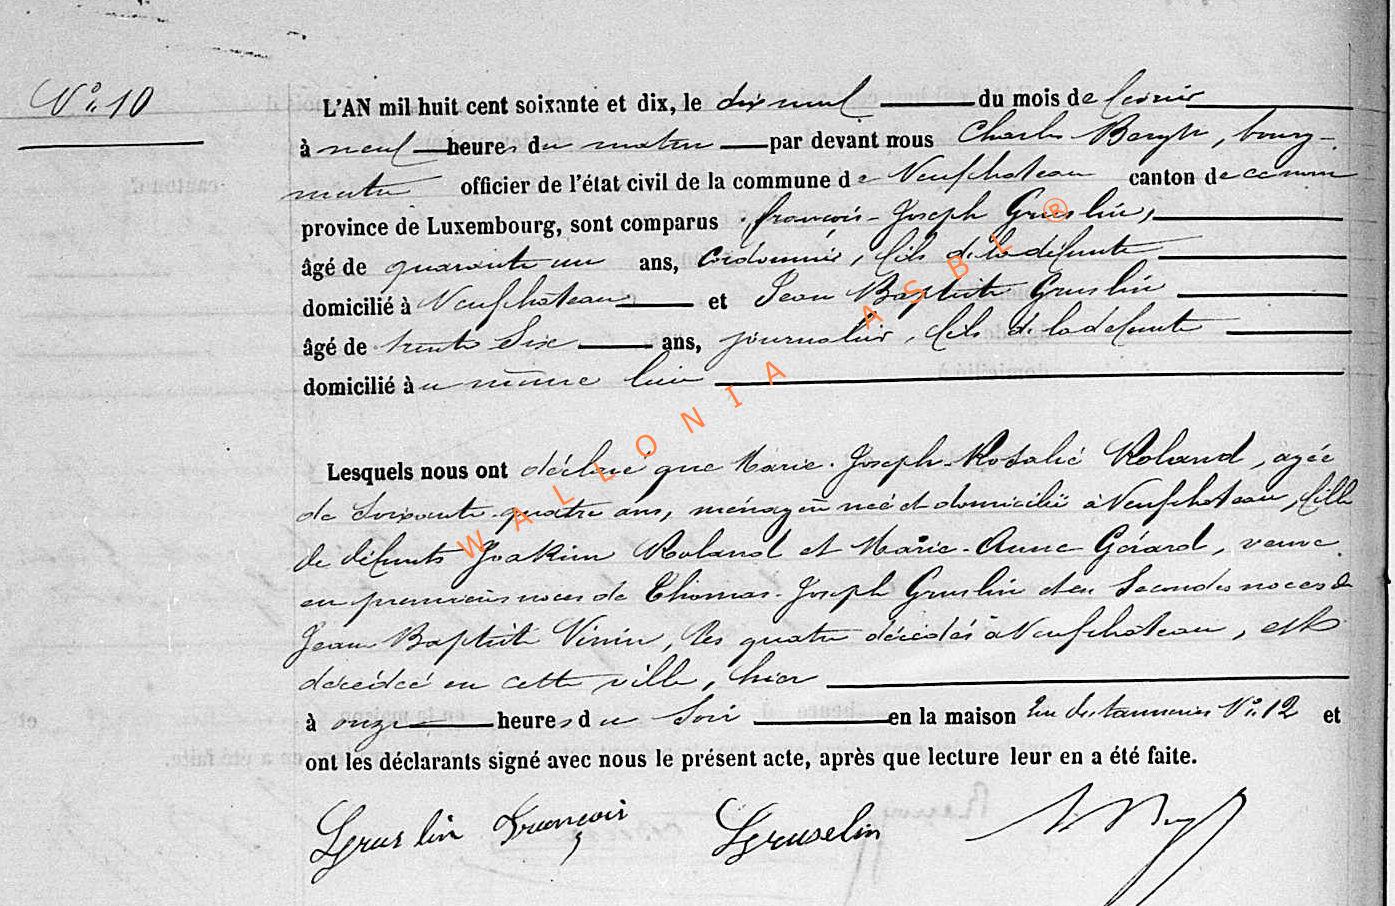 N° 10
L'AN mil huit cent soixante et dix, le dix neuf du mois de fevrier
à neuf heures du matin par devant nous Charles Bergh, bourg-
mestre officier de l'état civil de la commune de Neufchateau canton de ce nom
province de Luxembourg, sont comparus françois-Joseph Gruslin,
âgé de quarante un ans, Cordonnier, fils de la défunte
domicilié à Neufchateau et Jean Baptiste Gruslin
âgé de trente Six ans, journalier, fils de la defunte
domicilié à u même lieu
Lesquels nous ont déclaré que Marie-Joseph-Rosalie Roland, agée
de Soixante-quatre ans, ménagère née et domiciliée à Neufchateau, fille
de défunts Joakim Roland et Marie-Anne Gérard, veuve
en premières noces de Thomas-Joseph Gruslin et en Secondes noces de
Jean Baptiste, les quatre décédés à Neufchateau, est
décédée en cette ville, hier
à onze heures du Soir en la maison rue des tanneries N° 12 et
ont les déclarants signé avec nous le présent acte, après que lecture leur en a été faite.
Gruslin François Gruselin
WALLONIA ASBL ®